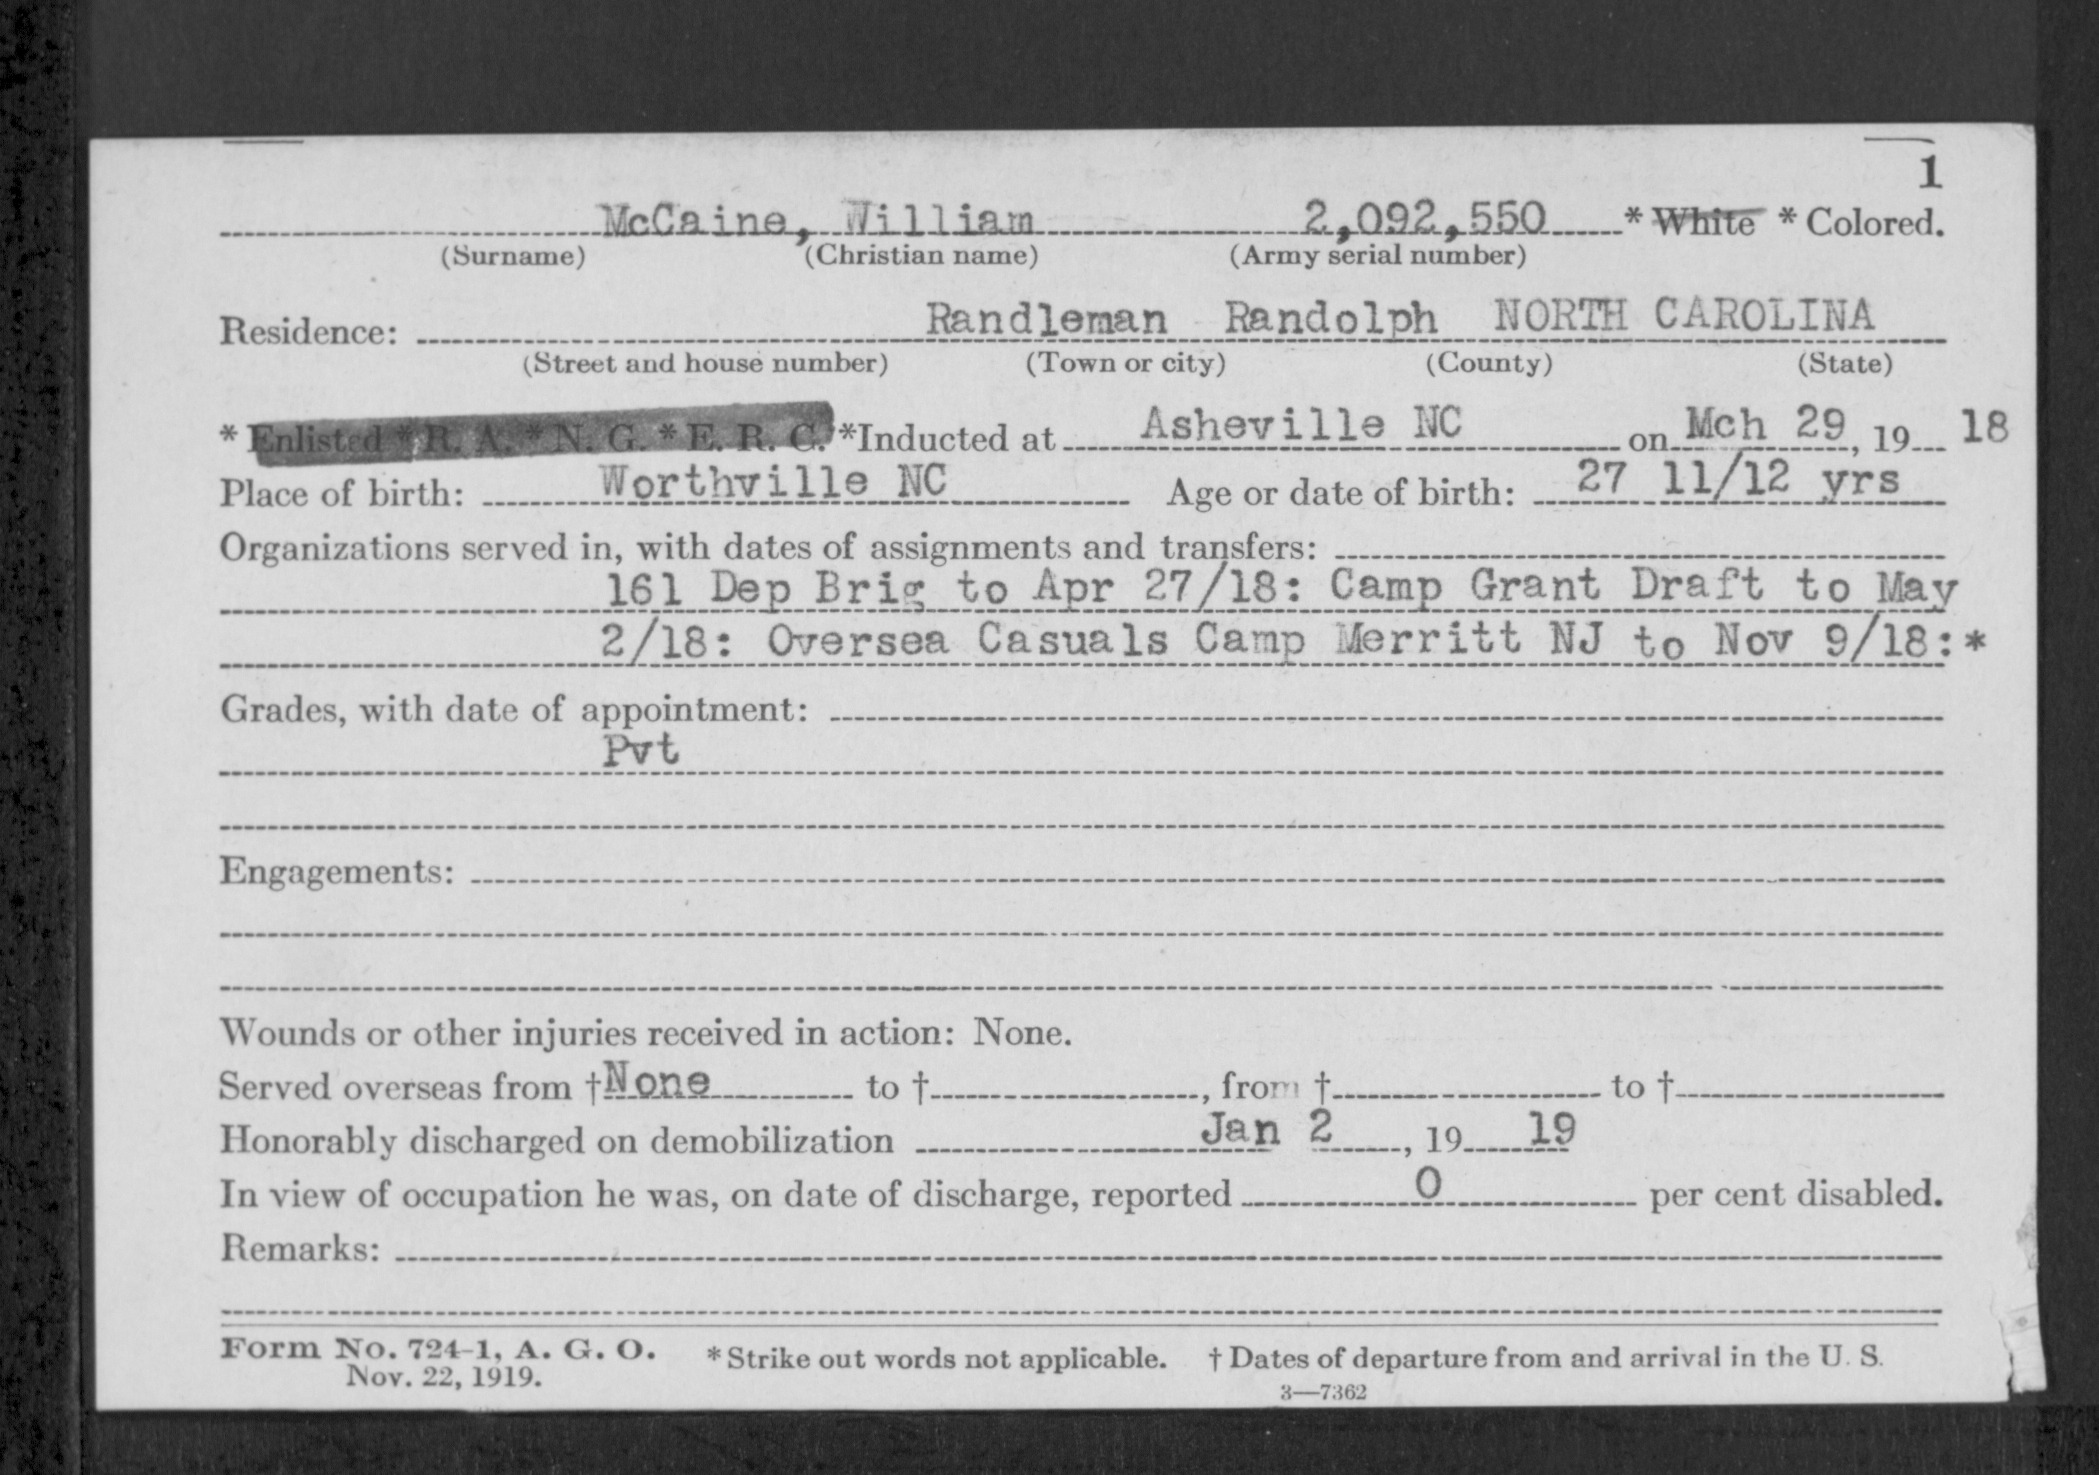 1
McCaine, William 2,092,550 * White * Colored.
(Surname) (Christian name) (Army serial number)
Residence: Randleman Randolph NORTH CAROLINA
(Street and house number) (Town or city) (County) (State)
* Enlisted * R. A. * N. G. * E. R. C. *Inducted at Asheville NC on Mch 29, 19 18
Place of birth: Worthville NC Age or date of birth: 27 11/12 yrs
Organizations served in, with dates of assignments and transfers:
161 Dep Brig to Apr 27/18: Camp Grant Draft to May
2/18: Oversea Casuals Camp Merritt NJ to Nov 9/18:*
Grades, with date of appointment:
Pvt
Engagements:
Wounds or other injuries received in action: None.
Served overseas from †None to †, from † to †
Honorably discharged on demobilization Jan 2, 19 19
In view of occupation he was, on date of discharge, reported 0 per cent disabled.
Remarks:
Form No. 724-1, A. G. O. * Strike out words not applicable. † Dates of departure from and arrival in the U. S.
Nov. 22, 1919.
3—7362